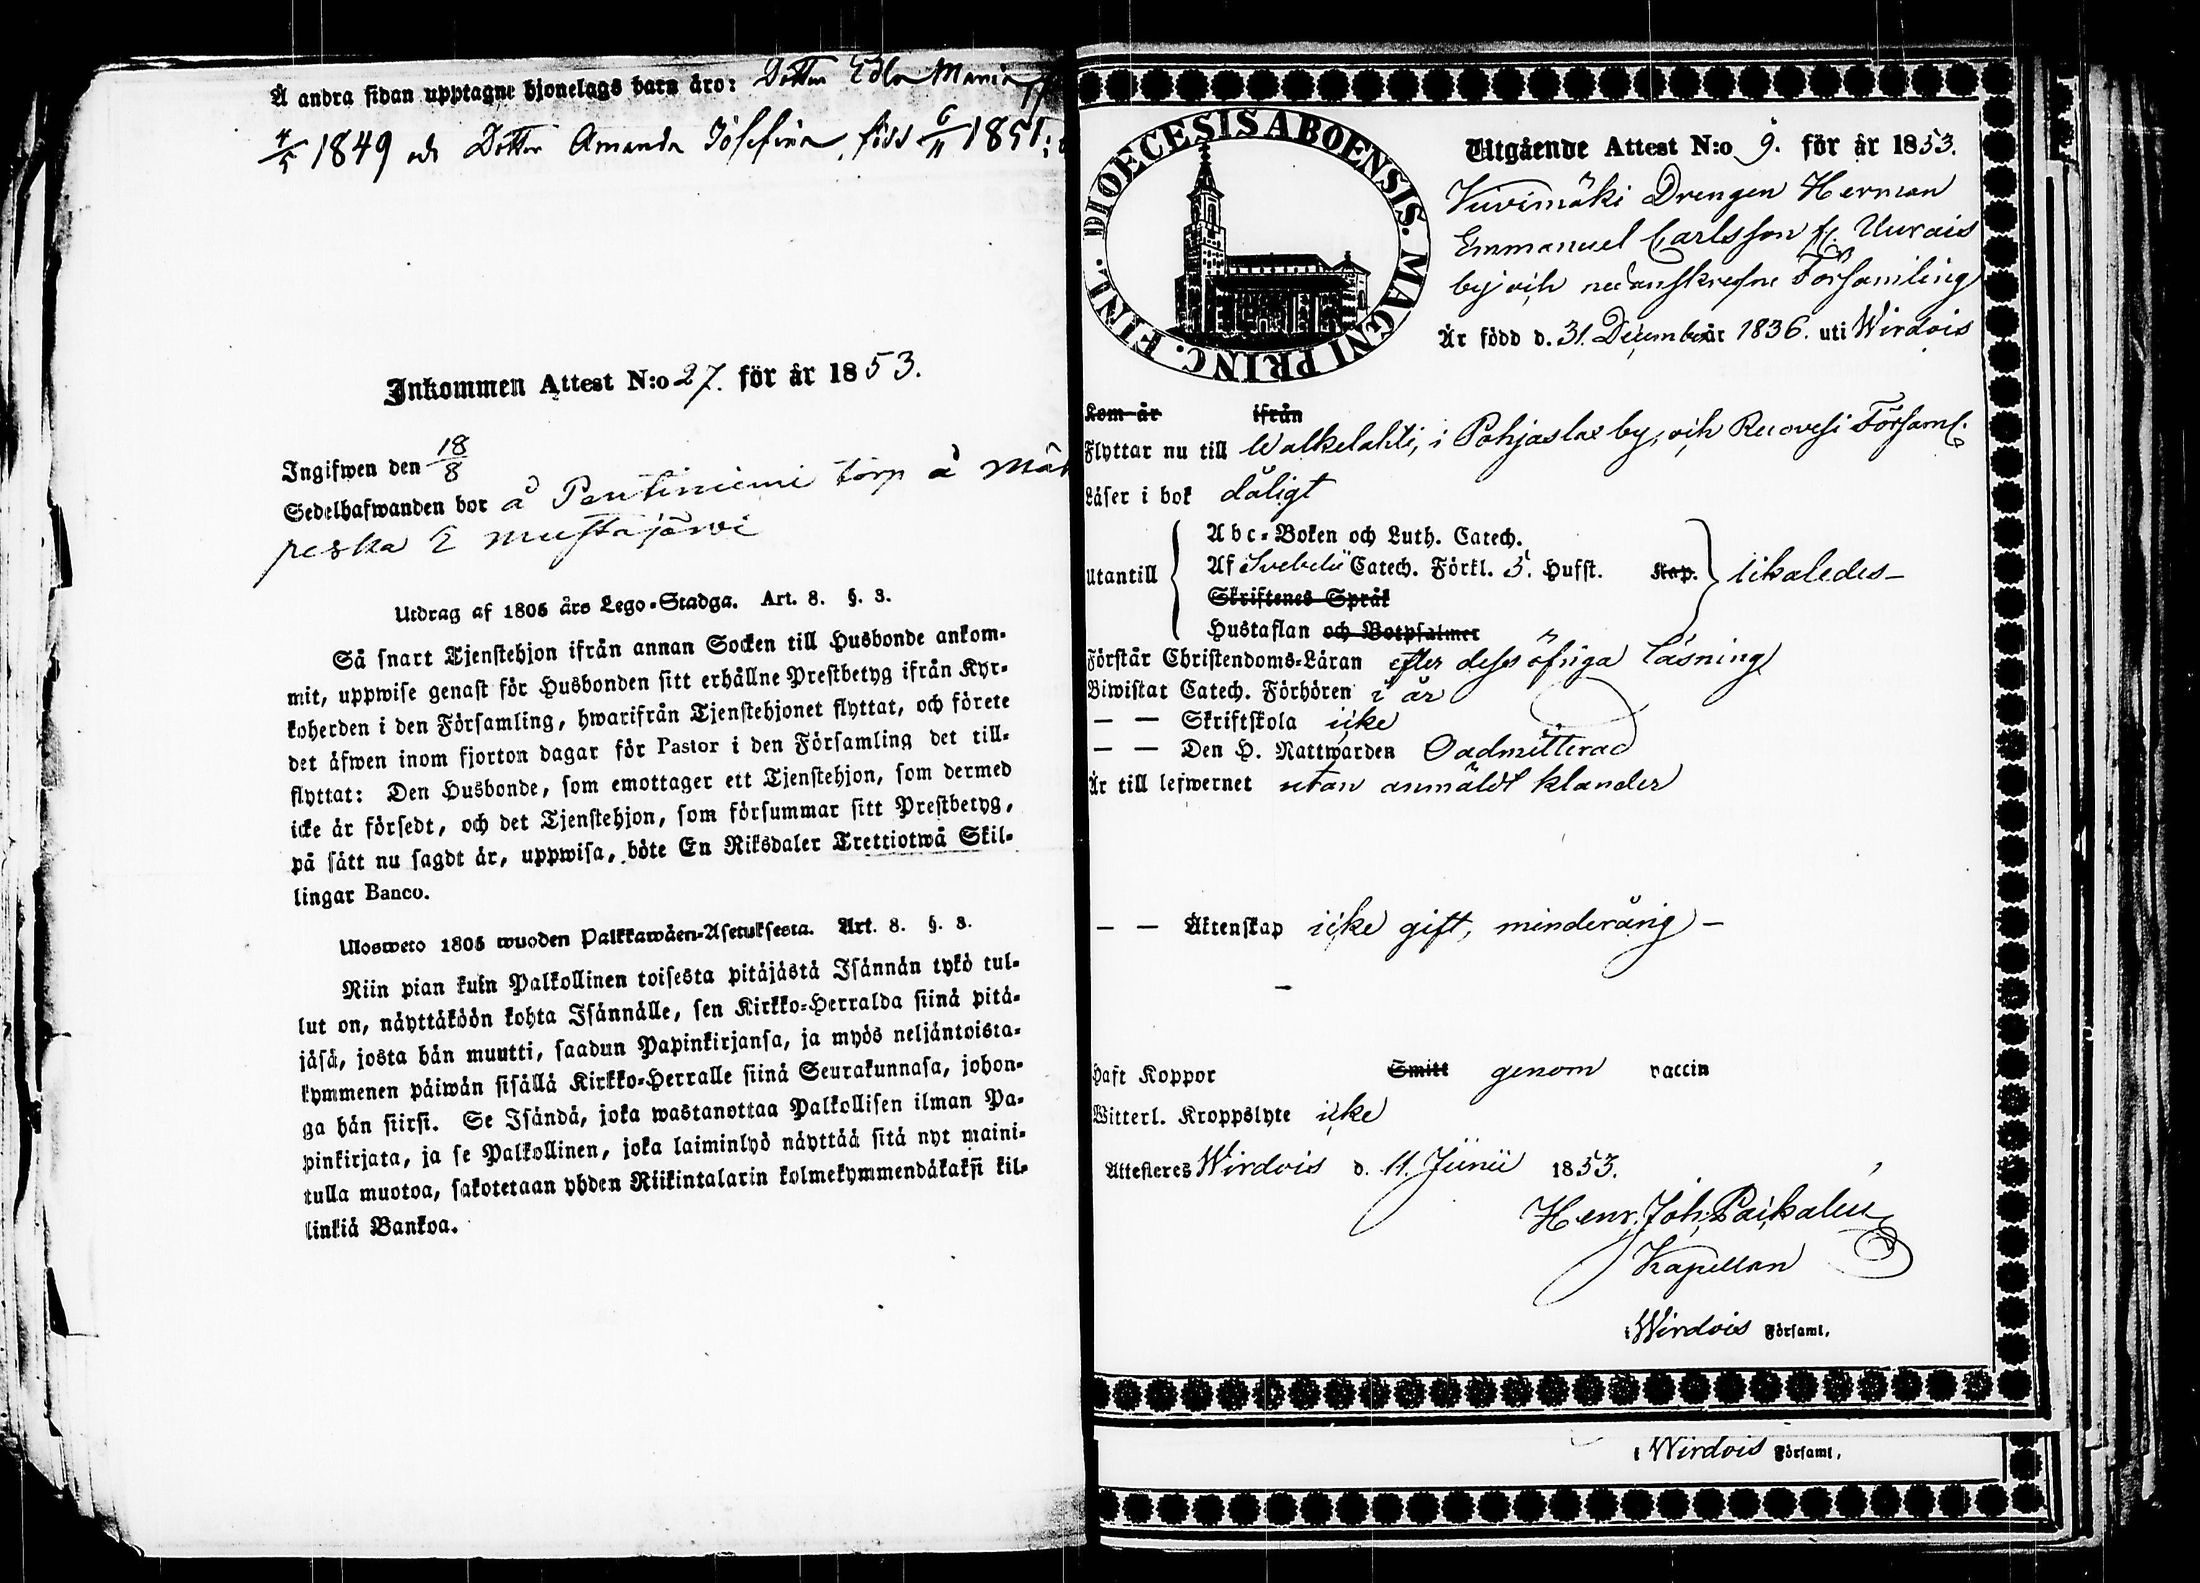 Å andra sidan upptagne hjonelags barn äro: Dotter Edla Maria
4/5 1849 och Dotter Amanda Josefina, född 6/11 1851:
Inkommen Attest N:o 27. för år 1853.
Ingifwen den 18/8
Sedelhafwanden bor å Pentiniemi torp å
peska & Mustajärvi
Utdrag af 1805 års Lego-Stadga. Art. 8. §. 3.
Så snart Tjenstehjon ifrån annan Socken till Husbonde ankom-
mit, uppwise genast för Husbonden sitt erhållne Prestbetyg ifrån Kyr-
koherden i den Församling, hwarifrån Tjenstehjonet flyttat, och förete
det äfwen inom fjorton dagar för Pastor i den Församling det till-
flyttat: Den Husbonde, som emottager ett Tjenstehjon, som dermed
icke är försedt, och det Tjenstehjon, som försummar sitt Prestbetyg,
på sätt nu sagdt är, uppwisa, böte En Riksdaler Trettiotwå Skil-
lingar Banco.
Ulosweto 1805 wuoden Palkkawäen-Asetuksesta. Art. 8. §. 3.
Niin pian kuin Palkollinen toisesta pitäjästä Isännän tykö tul-
lut on, näyttäköön kohta Isännälle, sen Kirkko-Herralda siinä pitä-
jäsä, josta hän muutti, saadun Papinkirjansa, ja myös neljäntoista-
kymmenen päiwän sisällä Kirkko-Herralle siinä Seurakunnasa, johon-
ga hän siirsi. Se Isändä, joka wastanottaa Palkollisen ilman Pa-
pinkirjata, ja se Palkollinen, joka laiminlyö näyttää sitä nyt maini-
tulla muotoa, sakotetaan yhden Riikintalarin kolmekymmendäkaksi kil-
linkiä Bankoa.
DIOECESIS ABOENSIS. MAGNI PRINC. FINL.
Utgående Attest N:o 9. för år 1853.
Vuvimäki Drengen Herman
Emmanuel Carlsson fr. Uurais
by och nedanskrefne Församling
Är född d. 31. December år 1836. uti Wirdois
Kom år ifrån
Flyttar nu till Walkelahti, i Pohjaslax by, och Ruovesi Församl.
Läser i bok dåligt
Utantill
Abc-Boken och Luth. Catech.
Af Svebelii Catech. Förkl. 5. Hufst. Kap. likaledes
Skriftenes Språk
Hustaflan och Botpsalmer
Förstår Christendoms-Läran efter dess öfriga läsning
Biwistat Catech. Förhören i år
— — Skriftskola icke
— — Den H. Nattwarden Oadmitterad
Är till lefwernet utan anmäldt klander
— — Äktenskap icke gift, minderårig —
Haft Koppor Smitt genom vaccin
Witterl. Kroppslyte icke
Attesteres Wirdois d. 11. Junii 1853.
Henr. Joh. Paikalén
Kapellan
i Wirdois Församl.
i Wirdois Församl.